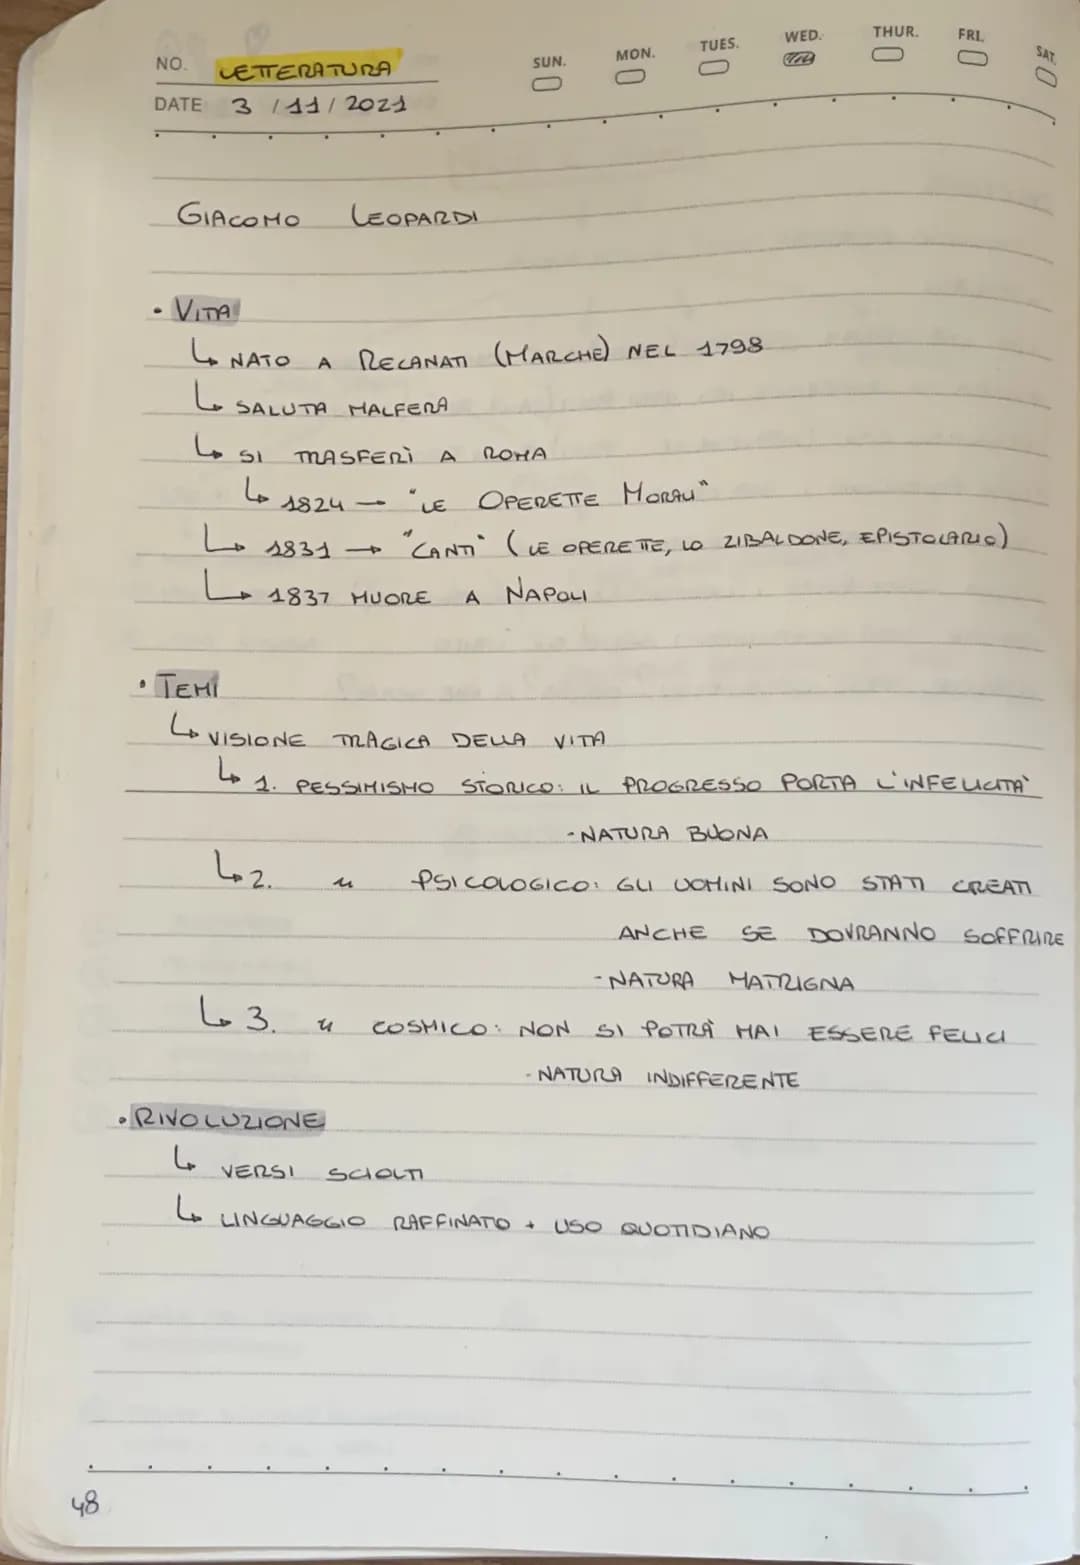 NO. LETTERATURA
SUN. MON. TUES. WED. THUR. FRI. SAT.
DATE 3 / 11 / 2021
GIACOMO LEOPARDI
• VITA
↳ NATO A RECANATI (MARCHE) NEL 1798
↳ SALUTA MALFERA
↳ SI TRASFERÌ A ROMA
↳ 1824 → "LE OPERETTE MORALI"
↳ 1831 → "CANTI" (LE OPERETTE, LO ZIBALDONE, EPISTOLARIO)
↳ 1837 MUORE A NAPOLI
• TEMI
↳ VISIONE TRAGICA DELLA VITA
↳ 1. PESSIMISMO STORICO: IL PROGRESSO PORTA L'INFELICITÀ
- NATURA BUONA
↳ 2. " PSICOLOGICO: GLI UOMINI SONO STATI CREATI
ANCHE SE DOVRANNO SOFFRIRE
- NATURA MATRIGNA
↳ 3. " COSMICO: NON SI POTRÀ MAI ESSERE FELICI
- NATURA INDIFFERENTE
• RIVOLUZIONE
↳ VERSI SCIOLTI
↳ LINGUAGGIO RAFFINATO + USO QUOTIDIANO
48